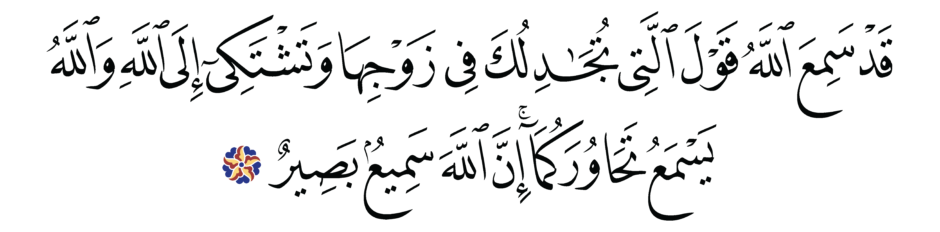 قَدْ سَمِعَ ٱللَّهُ قَوْلَ ٱلَّتِى تُجَـٰدِلُكَ فِى زَوْجِهَا وَتَشْتَكِىٓ إِلَى ٱللَّهِ وَٱللَّهُ
يَسْمَعُ تَحَاوُرَكُمَآ ۚ إِنَّ ٱللَّهَ سَمِيعٌۢ بَصِيرٌ